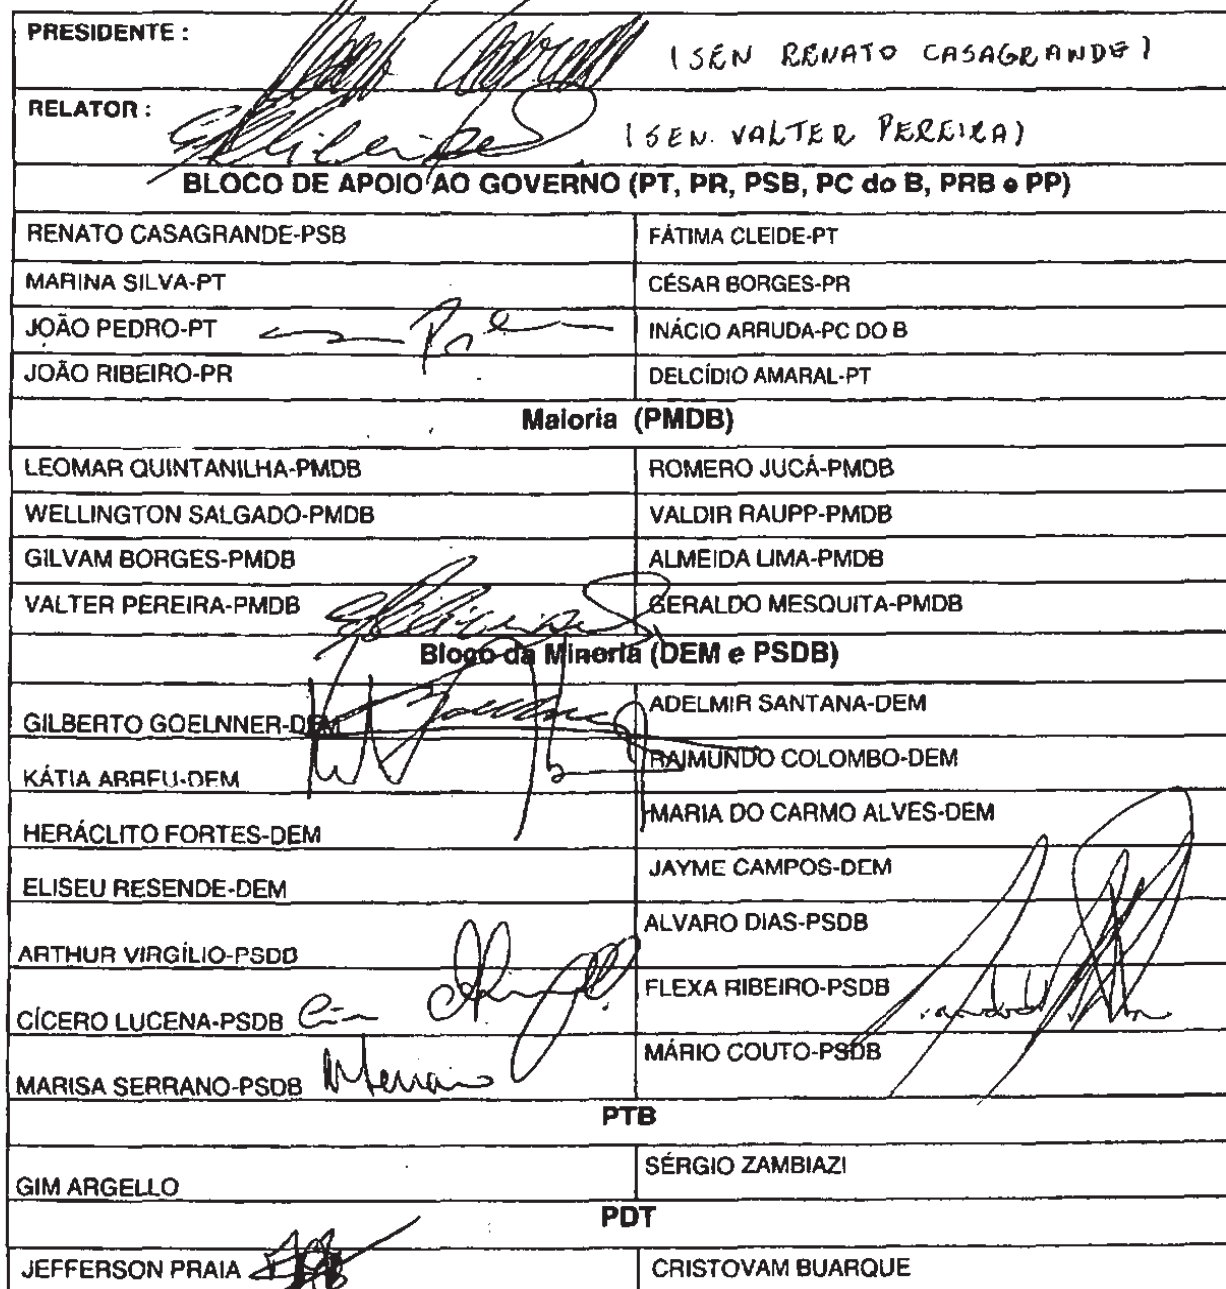 PRESIDENTE :
(SEN RENATO CASAGRANDE)
RELATOR :
(SEN. VALTER PEREIRA)
BLOCO DE APOIO AO GOVERNO (PT, PR, PSB, PC do B, PRB e PP)
RENATO CASAGRANDE-PSB FÁTIMA CLEIDE-PT
MARINA SILVA-PT CÉSAR BORGES-PR
JOÃO PEDRO-PT INÁCIO ARRUDA-PC DO B
JOÃO RIBEIRO-PR DELCÍDIO AMARAL-PT
Maioria (PMDB)
LEOMAR QUINTANILHA-PMDB ROMERO JUCÁ-PMDB
WELLINGTON SALGADO-PMDB VALDIR RAUPP-PMDB
GILVAM BORGES-PMDB ALMEIDA LIMA-PMDB
VALTER PEREIRA-PMDB GERALDO MESQUITA-PMDB
Bloco da Minoria (DEM e PSDB)
GILBERTO GOELNNER-DEM ADELMIR SANTANA-DEM
KÁTIA ABREU-DEM RAIMUNDO COLOMBO-DEM
HERÁCLITO FORTES-DEM MARIA DO CARMO ALVES-DEM
ELISEU RESENDE-DEM JAYME CAMPOS-DEM
ARTHUR VIRGÍLIO-PSDB ALVARO DIAS-PSDB
CÍCERO LUCENA-PSDB FLEXA RIBEIRO-PSDB
MARISA SERRANO-PSDB MÁRIO COUTO-PSDB
PTB
GIM ARGELLO SÉRGIO ZAMBIAZI
PDT
JEFFERSON PRAIA CRISTOVAM BUARQUE